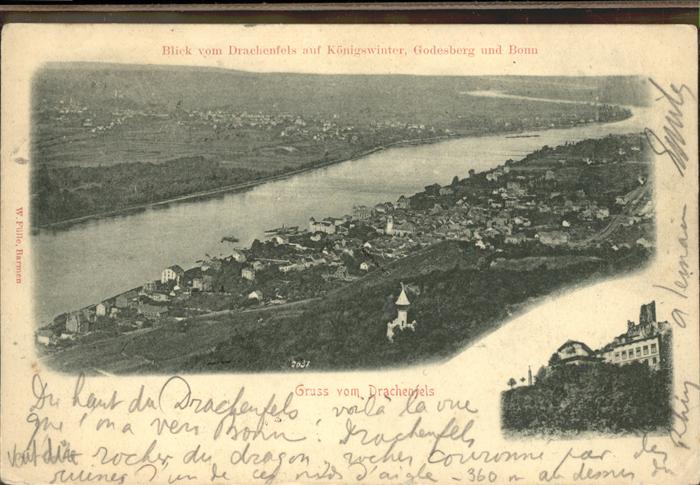 Blick vom Drachenfels auf Königswinter, Godesberg und Bonn
W. Fülle, Barmen
2031
Gruss vom Drachenfels
Du haut du Drachenfels voilà la vue
que l'on a vers Bonn. Drachenfels
veut dire rocher du dragon rocher couronné par des
ruines d'un de ces nids d'aigle - 360 m au dessus du
Rhin
à demain